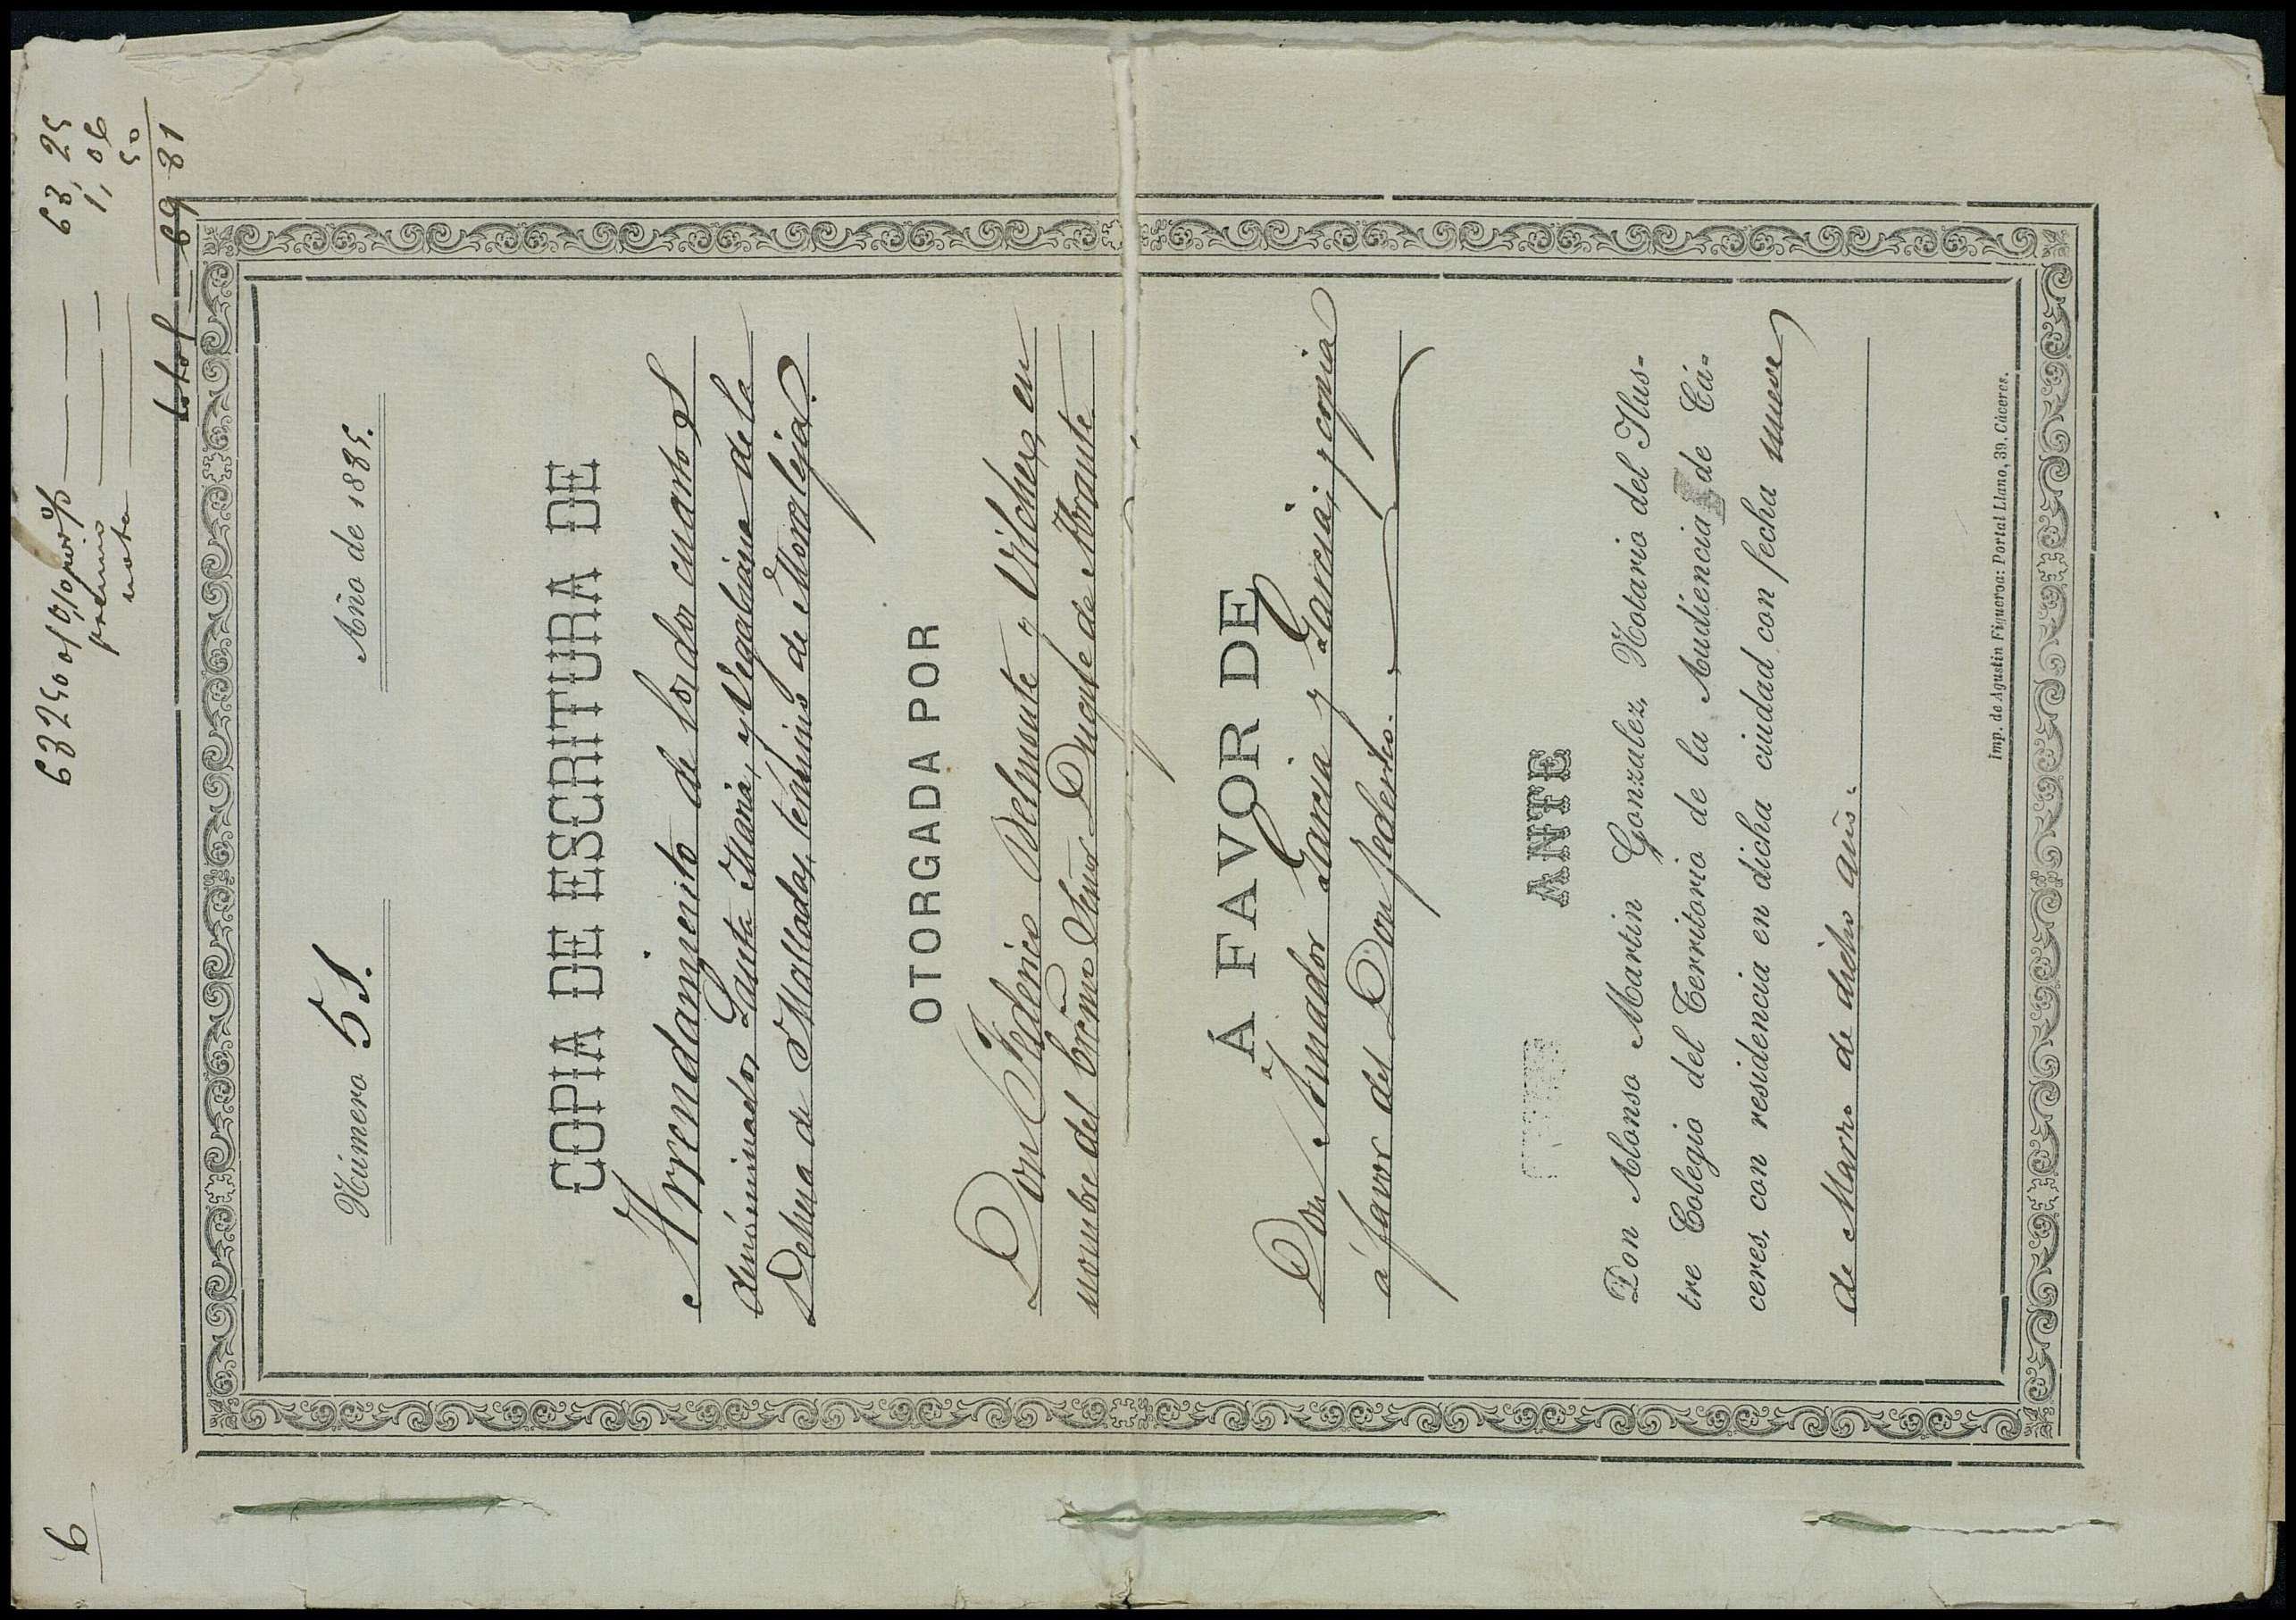 6
63250 0/0 por % 63,25
premio 1,06
nota 50
total 69 81
Número 51.
Año de 1885.
COPIA DE ESCRITURA DE
Arrendamiento de los dos cuartos
denominados Santa Maria, y Vegabiana de la
Dehesa de Malladas, término de Moraleja.
OTORGADA POR
Don Federico Belmonte y Vilches, en
nombre del Ecrmo Señor Duque de Abrante
Á FAVOR DE
Don Amador Garcia y Garcia, y copia
a favor del Don Federico.
ANTE
Don Alonso Martin Gonzalez, Notario del Ilus-
tre Colegio del Territorio de la Audiencia de Cá-
ceres, con residencia en dicha ciudad con fecha nueve
de Marzo de dicho año.
Imp. de Agustin Figueroa: Portal Llano, 39, Cáceres.